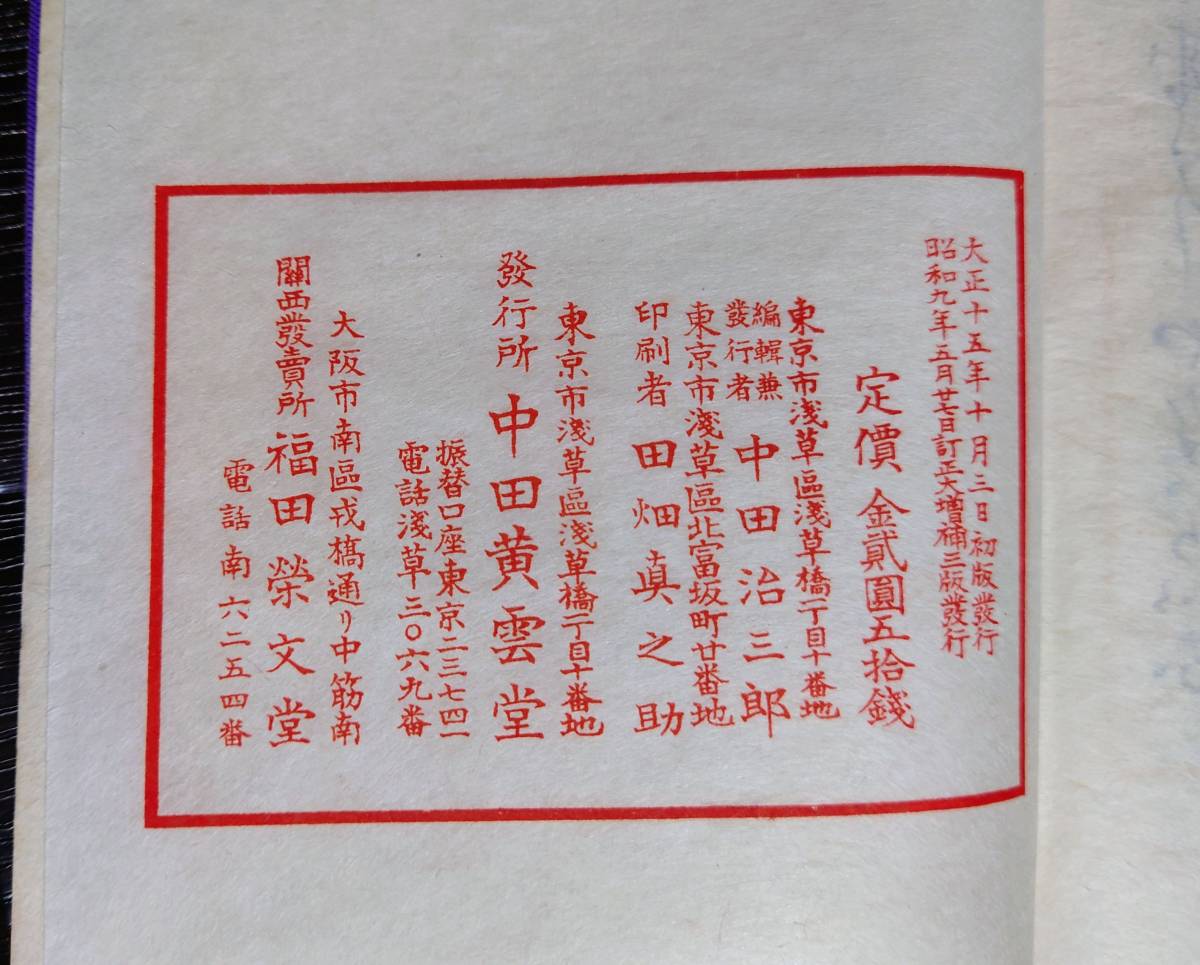 大正十五年十月三日初版發行
昭和九年五月廿七日訂正大增補三版發行
定價 金貳圓五拾錢
東京市淺草區淺草橋一丁目十番地
編輯兼
發行者 中田治三郎
東京市淺草區北富坂町廿番地
印刷者 田畑眞之助
東京市淺草區淺草橋一丁目十番地
發行所 中田黄雲堂
振替口座東京二三七四一
電話淺草三〇六九番
大阪市南區戎橋通リ中筋南
關西發賣所 福田榮文堂
電話南六二五四番